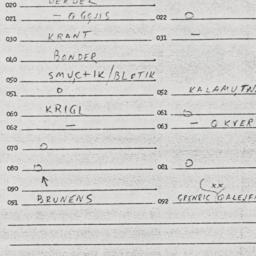 020
021 - OGGJIS 022 O
030 KRANT 031 -
040 BONDER
050 SMUC+IK/BLOTIK
051 O 052 KALAMUTN
060 KRIGL 061 O
062 - 063 - OKVER
070 O
080 O 081 O
090 xx
091 BRUNENS 092